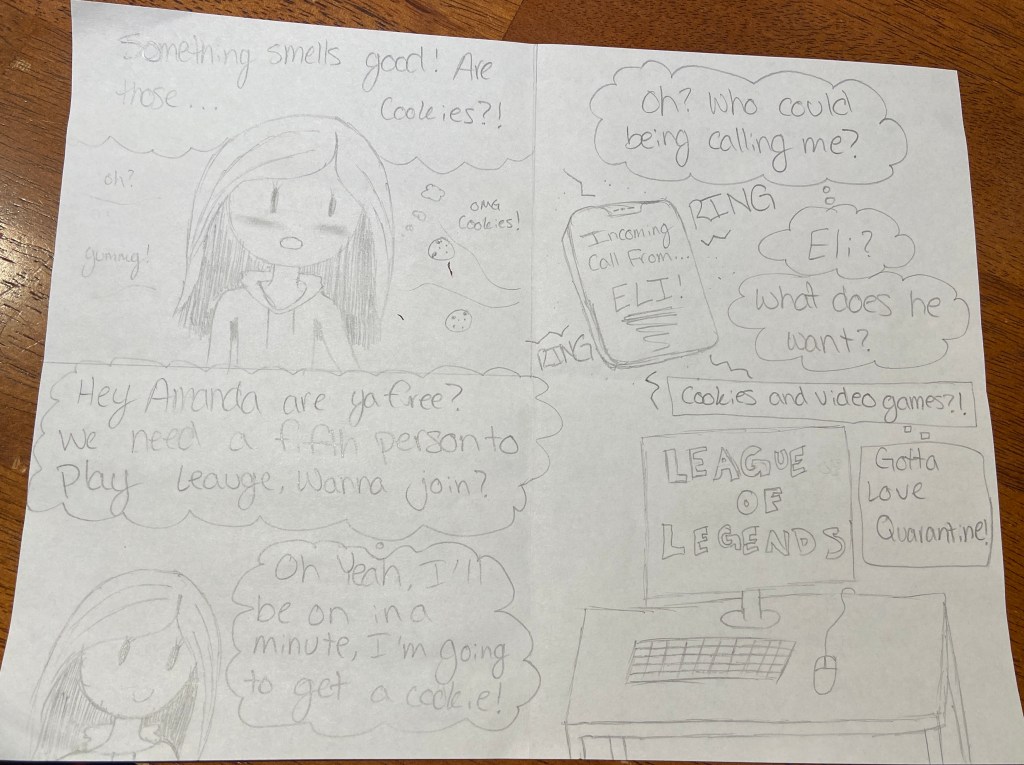 Something smells good! Are
those... Cookies?!
oh?
yummy!
OMG
Cookies!
Oh? Who could
being calling me?
RING
Incoming
Call From...
ELI!
RING
Eli?
What does he
want?
Hey Amanda are ya free?
We need a fifth person to
Play Leauge, Wanna join?
Oh Yeah, I'll
be on in a
minute, I'm going
to get a cookie!
Cookies and video games?!
LEAGUE
OF
LEGENDS
Gotta
Love
Quarantine!